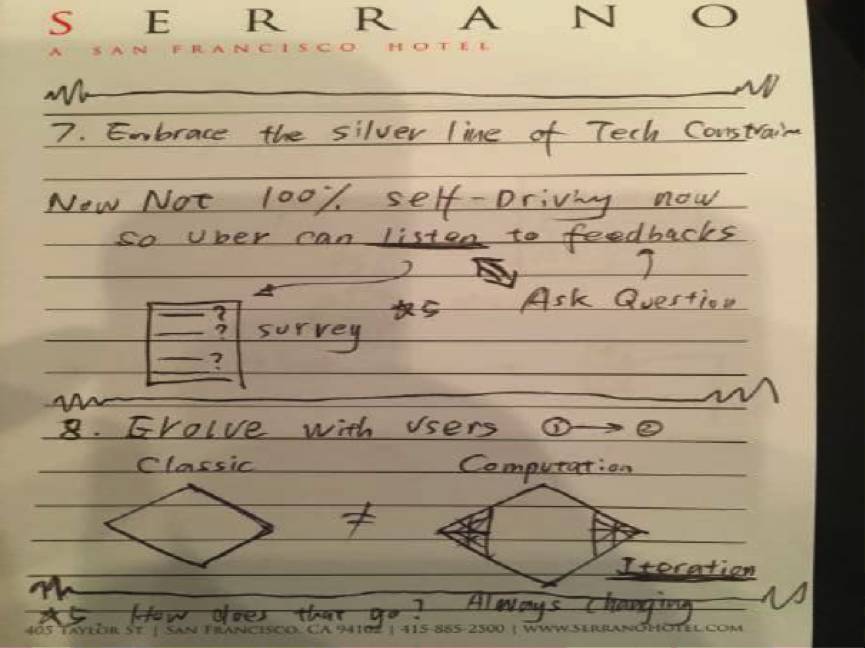 SERRANO
A SAN FRANCISCO HOTEL
7. Embrace the silver line of Tech Constrain
Now Not 100% self-Driving now
so Uber can listen to feedbacks
Ask Question
*5
?
? survey
?
8. Evolve with users ① → ②
Classic Computation
≠
Iteration
*5 How does that go? Always changing
405 TAYLOR ST | SAN FRANCISCO, CA 94102 | 415-885-2500 | WWW.SERRANOHOTEL.COM